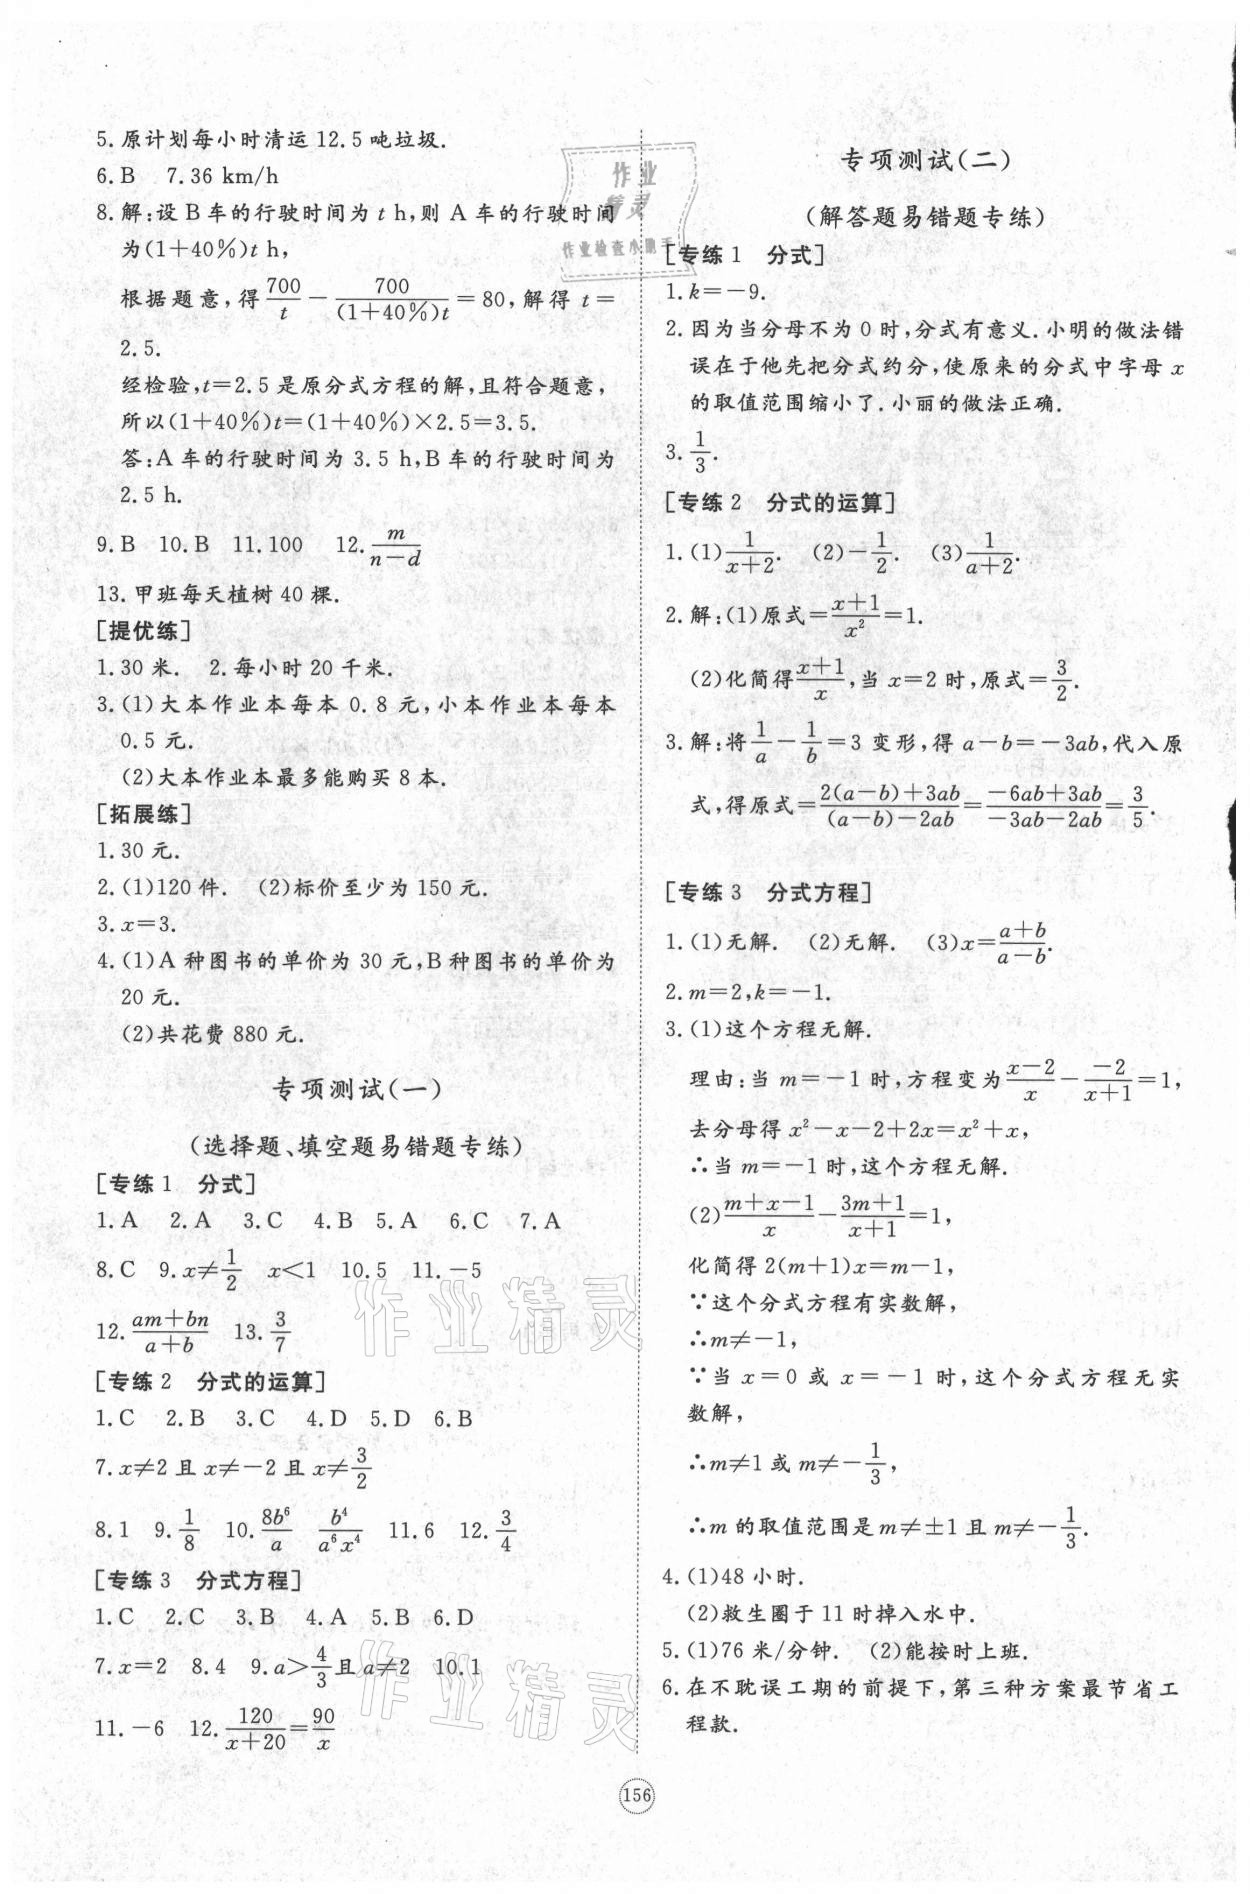 5.原计划每小时清运12.5吨垃圾.
6.B 7.36 km/h
8.解:设B车的行驶时间为t h,则A车的行驶时间
为(1+40%)t h,
根据题意,得700/t-700/((1+40%)t)=80,解得t=
2.5.
经检验,t=2.5是原分式方程的解,且符合题意,
所以(1+40%)t=(1+40%)×2.5=3.5.
答:A车的行驶时间为3.5 h,B车的行驶时间为
2.5 h.
9.B 10.B 11.100 12.m/(n-d)
13.甲班每天植树40棵.
[提优练]
1.30米. 2.每小时20千米.
3.(1)大本作业本每本0.8元,小本作业本每本
0.5元.
(2)大本作业本最多能购买8本.
[拓展练]
1.30元.
2.(1)120件. (2)标价至少为150元.
3.x=3.
4.(1)A种图书的单价为30元,B种图书的单价为
20元.
(2)共花费880元.
专项测试(一)
(选择题、填空题易错题专练)
[专练1 分式]
1.A 2.A 3.C 4.B 5.A 6.C 7.A
8.C 9.x≠1/2 x<1 10.5 11.-5
12.(am+bn)/(a+b) 13.3/7
[专练2 分式的运算]
1.C 2.B 3.C 4.D 5.D 6.B
7.x≠2且x≠-2且x≠3/2
8.1 9.1/8 10.8b⁶/a b⁴/(a⁶x⁴) 11.6 12.3/4
[专练3 分式方程]
1.C 2.C 3.B 4.A 5.B 6.D
7.x=2 8.4 9.a>4/3且a≠2 10.1
11.-6 12.120/(x+20)=90/x
专项测试(二)
(解答题易错题专练)
[专练1 分式]
1.k=-9.
2.因为当分母不为0时,分式有意义.小明的做法错
误在于他先把分式约分,使原来的分式中字母x
的取值范围缩小了.小丽的做法正确.
3.1/3.
[专练2 分式的运算]
1.(1)1/(x+2). (2)-1/2. (3)1/(a+2).
2.解:(1)原式=(x+1)/x²=1.
(2)化简得(x+1)/x,当x=2时,原式=3/2.
3.解:将1/a-1/b=3变形,得a-b=-3ab,代入原
式,得原式=(2(a-b)+3ab)/((a-b)-2ab)=(-6ab+3ab)/(-3ab-2ab)=3/5.
[专练3 分式方程]
1.(1)无解. (2)无解. (3)x=(a+b)/(a-b).
2.m=2,k=-1.
3.(1)这个方程无解.
理由:当m=-1时,方程变为(x-2)/x-(-2)/(x+1)=1,
去分母得x²-x-2+2x=x²+x,
∴当m=-1时,这个方程无解.
(2)(m+x-1)/x-(3m+1)/(x+1)=1,
化简得2(m+1)x=m-1,
∵这个分式方程有实数解,
∴m≠-1,
∵当x=0或x=-1时,这个分式方程无实
数解,
∴m≠1或m≠-1/3,
∴m的取值范围是m≠±1且m≠-1/3.
4.(1)48小时.
(2)救生圈于11时掉入水中.
5.(1)76米/分钟. (2)能按时上班.
6.在不耽误工期的前提下,第三种方案最节省工
程款.
156
作业
精灵
作业检查小助手
作业精灵
作业精灵